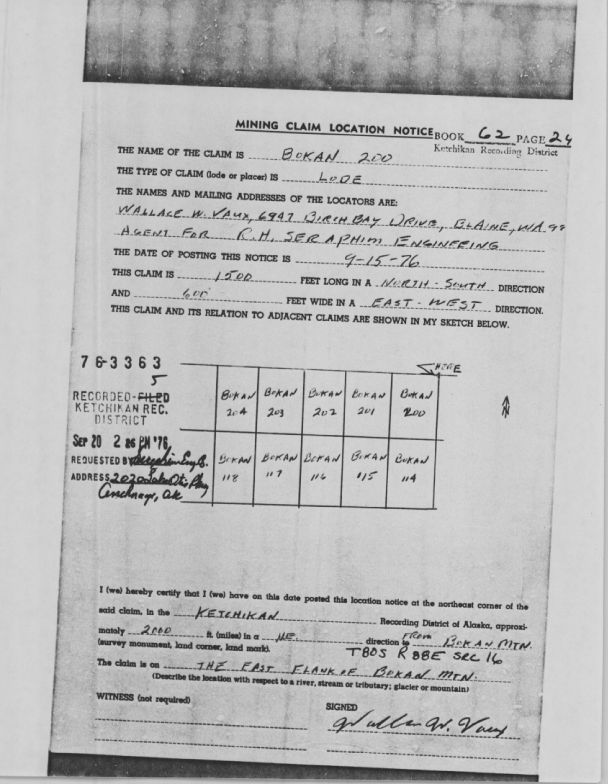 MINING CLAIM LOCATION NOTICE BOOK 62 PAGE 24
Ketchikan Recording District
THE NAME OF THE CLAIM IS BOKAN 200
THE TYPE OF CLAIM (lode or placer) IS LODE
THE NAMES AND MAILING ADDRESSES OF THE LOCATORS ARE:
WALLACE W. VAUX, 6947 BIRCH BAY DRIVE, BLAINE, WA 98
AGENT FOR R.H. SERAPHIM ENGINEERING
THE DATE OF POSTING THIS NOTICE IS 9-15-76
THIS CLAIM IS 1500 FEET LONG IN A NORTH - SOUTH DIRECTION
AND 600 FEET WIDE IN A EAST - WEST DIRECTION.
THIS CLAIM AND ITS RELATION TO ADJACENT CLAIMS ARE SHOWN IN MY SKETCH BELOW.
HERE
N
76-3363
5
RECORDED-FILED
KETCHIKAN REC.
DISTRICT
SEP 20 2 26 PM '76
REQUESTED BY Seraphim Eng.
ADDRESS 2020 Lake Otis Pkwy
Anchorage, AK
BOKAN BOKAN BOKAN BOKAN BOKAN
204 203 202 201 200
BOKAN BOKAN BOKAN BOKAN BOKAN
118 117 116 115 114
I (we) hereby certify that I (we) have on this date posted this location notice at the northeast corner of the
said claim, in the KETCHIKAN Recording District of Alaska, approxi-
mately 2000 ft. (miles) in a NE. direction to FROM BOKAN MTN.
(survey monument, land corner, land mark). T80S R88E SEC 16
The claim is on THE EAST FLANK OF BOKAN MTN.
(Describe the location with respect to a river, stream or tributary; glacier or mountain)
WITNESS (not required) SIGNED
Wallace W. Vaux